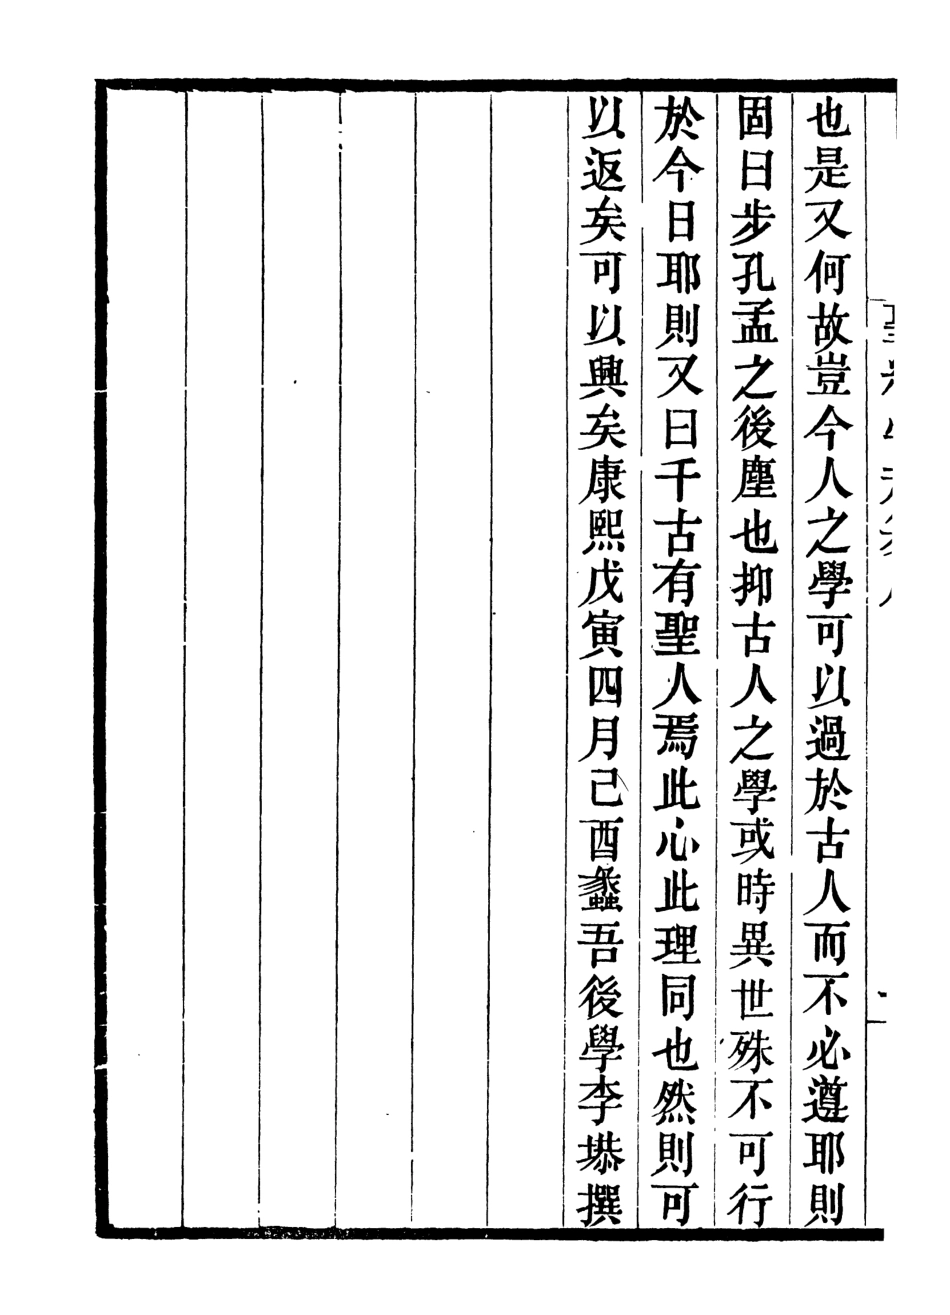 也是又何故豈今人之學可以過於古人而不必遵耶則
固曰步孔孟之後塵也抑古人之學或時異世殊不可行
於今日耶則又曰千古有聖人焉此心此理同也然則可
以返矣可以興矣康熙戊寅四月己酉蠡吾後學李塨撰